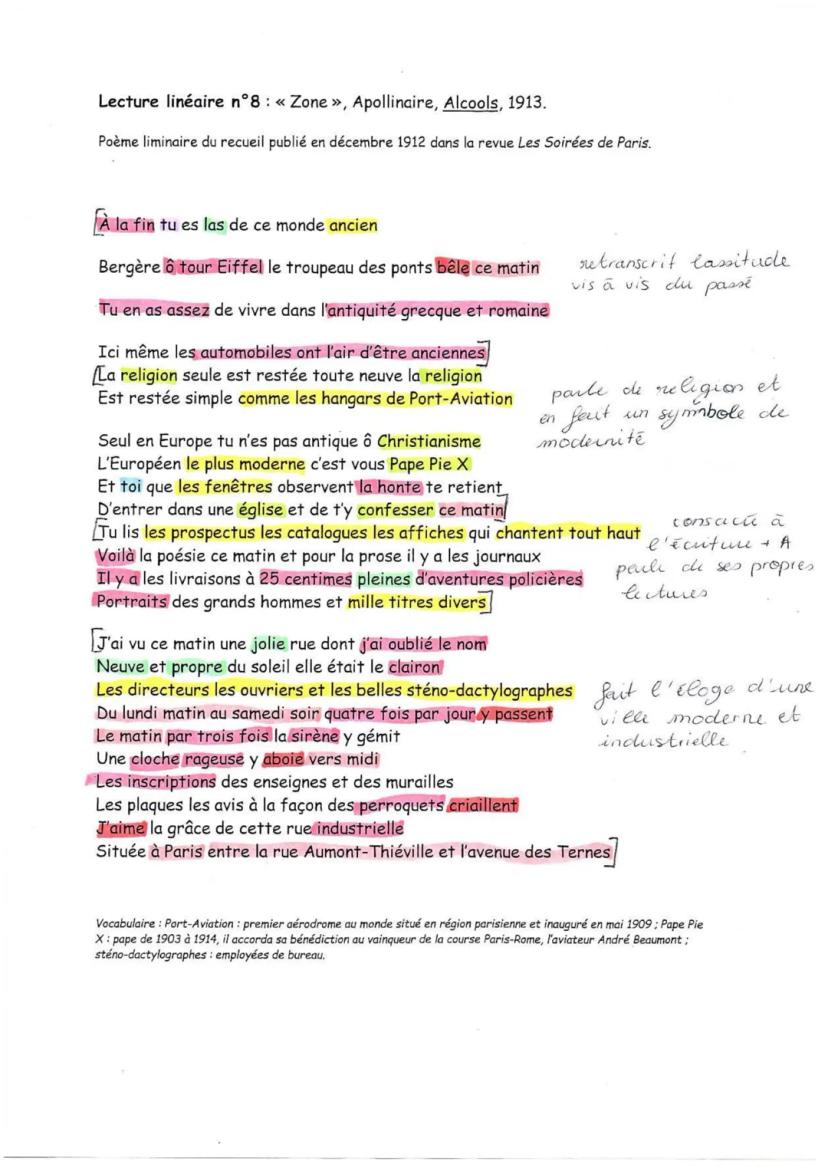 Lecture linéaire n°8 : « Zone », Apollinaire, Alcools, 1913.
Poème liminaire du recueil publié en décembre 1912 dans la revue Les Soirées de Paris.
À la fin tu es las de ce monde ancien
Bergère ô tour Eiffel le troupeau des ponts bêle ce matin
retranscrit lassitude
vis à vis du passé
Tu en as assez de vivre dans l'antiquité grecque et romaine
Ici même les automobiles ont l'air d'être anciennes
La religion seule est restée toute neuve la religion
Est restée simple comme les hangars de Port-Aviation
parle de religion et
en fait un symbole de
modernité
Seul en Europe tu n'es pas antique ô Christianisme
L'Européen le plus moderne c'est vous Pape Pie X
Et toi que les fenêtres observent la honte te retient
D'entrer dans une église et de t'y confesser ce matin
Tu lis les prospectus les catalogues les affiches qui chantent tout haut
Voilà la poésie ce matin et pour la prose il y a les journaux
Il y a les livraisons à 25 centimes pleines d'aventures policières
Portraits des grands hommes et mille titres divers
consacré à
l'écriture + A
parle de ses propres
lectures
J'ai vu ce matin une jolie rue dont j'ai oublié le nom
Neuve et propre du soleil elle était le clairon
Les directeurs les ouvriers et les belles sténo-dactylographes
Du lundi matin au samedi soir quatre fois par jour y passent
Le matin par trois fois la sirène y gémit
Une cloche rageuse y aboie vers midi
Les inscriptions des enseignes et des murailles
Les plaques les avis à la façon des perroquets criaillent
J'aime la grâce de cette rue industrielle
Située à Paris entre la rue Aumont-Thiéville et l'avenue des Ternes
fait l'éloge d'une
ville moderne et
industrielle
Vocabulaire : Port-Aviation : premier aérodrome au monde situé en région parisienne et inauguré en mai 1909 ; Pape Pie
X : pape de 1903 à 1914, il accorda sa bénédiction au vainqueur de la course Paris-Rome, l'aviateur André Beaumont ;
sténo-dactylographes : employées de bureau.